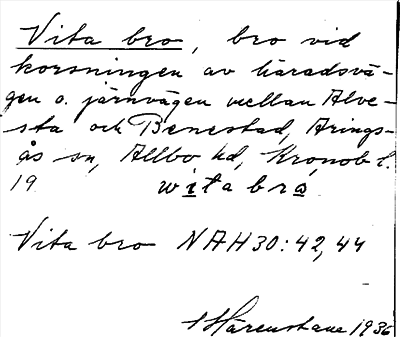 Vita bro, bro vid
korsningen av häradsvä-
gen o. järnvägen mellan Alve-
sta och Benestad, Arings-
ås sn, Allbo hd, Kronob. l.
19 wita brö
Vita bro NAH30:42,44
Härenstam 1936